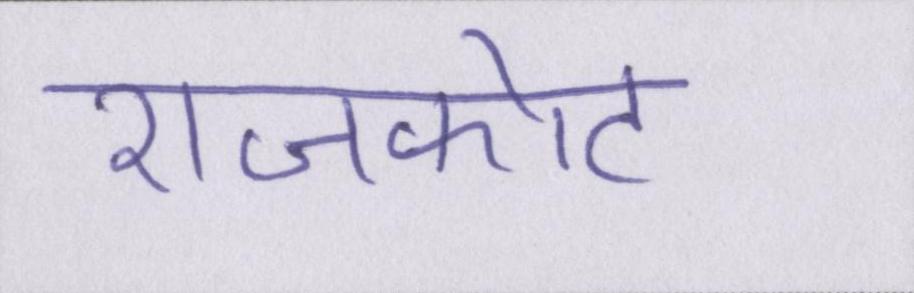 राजकोट